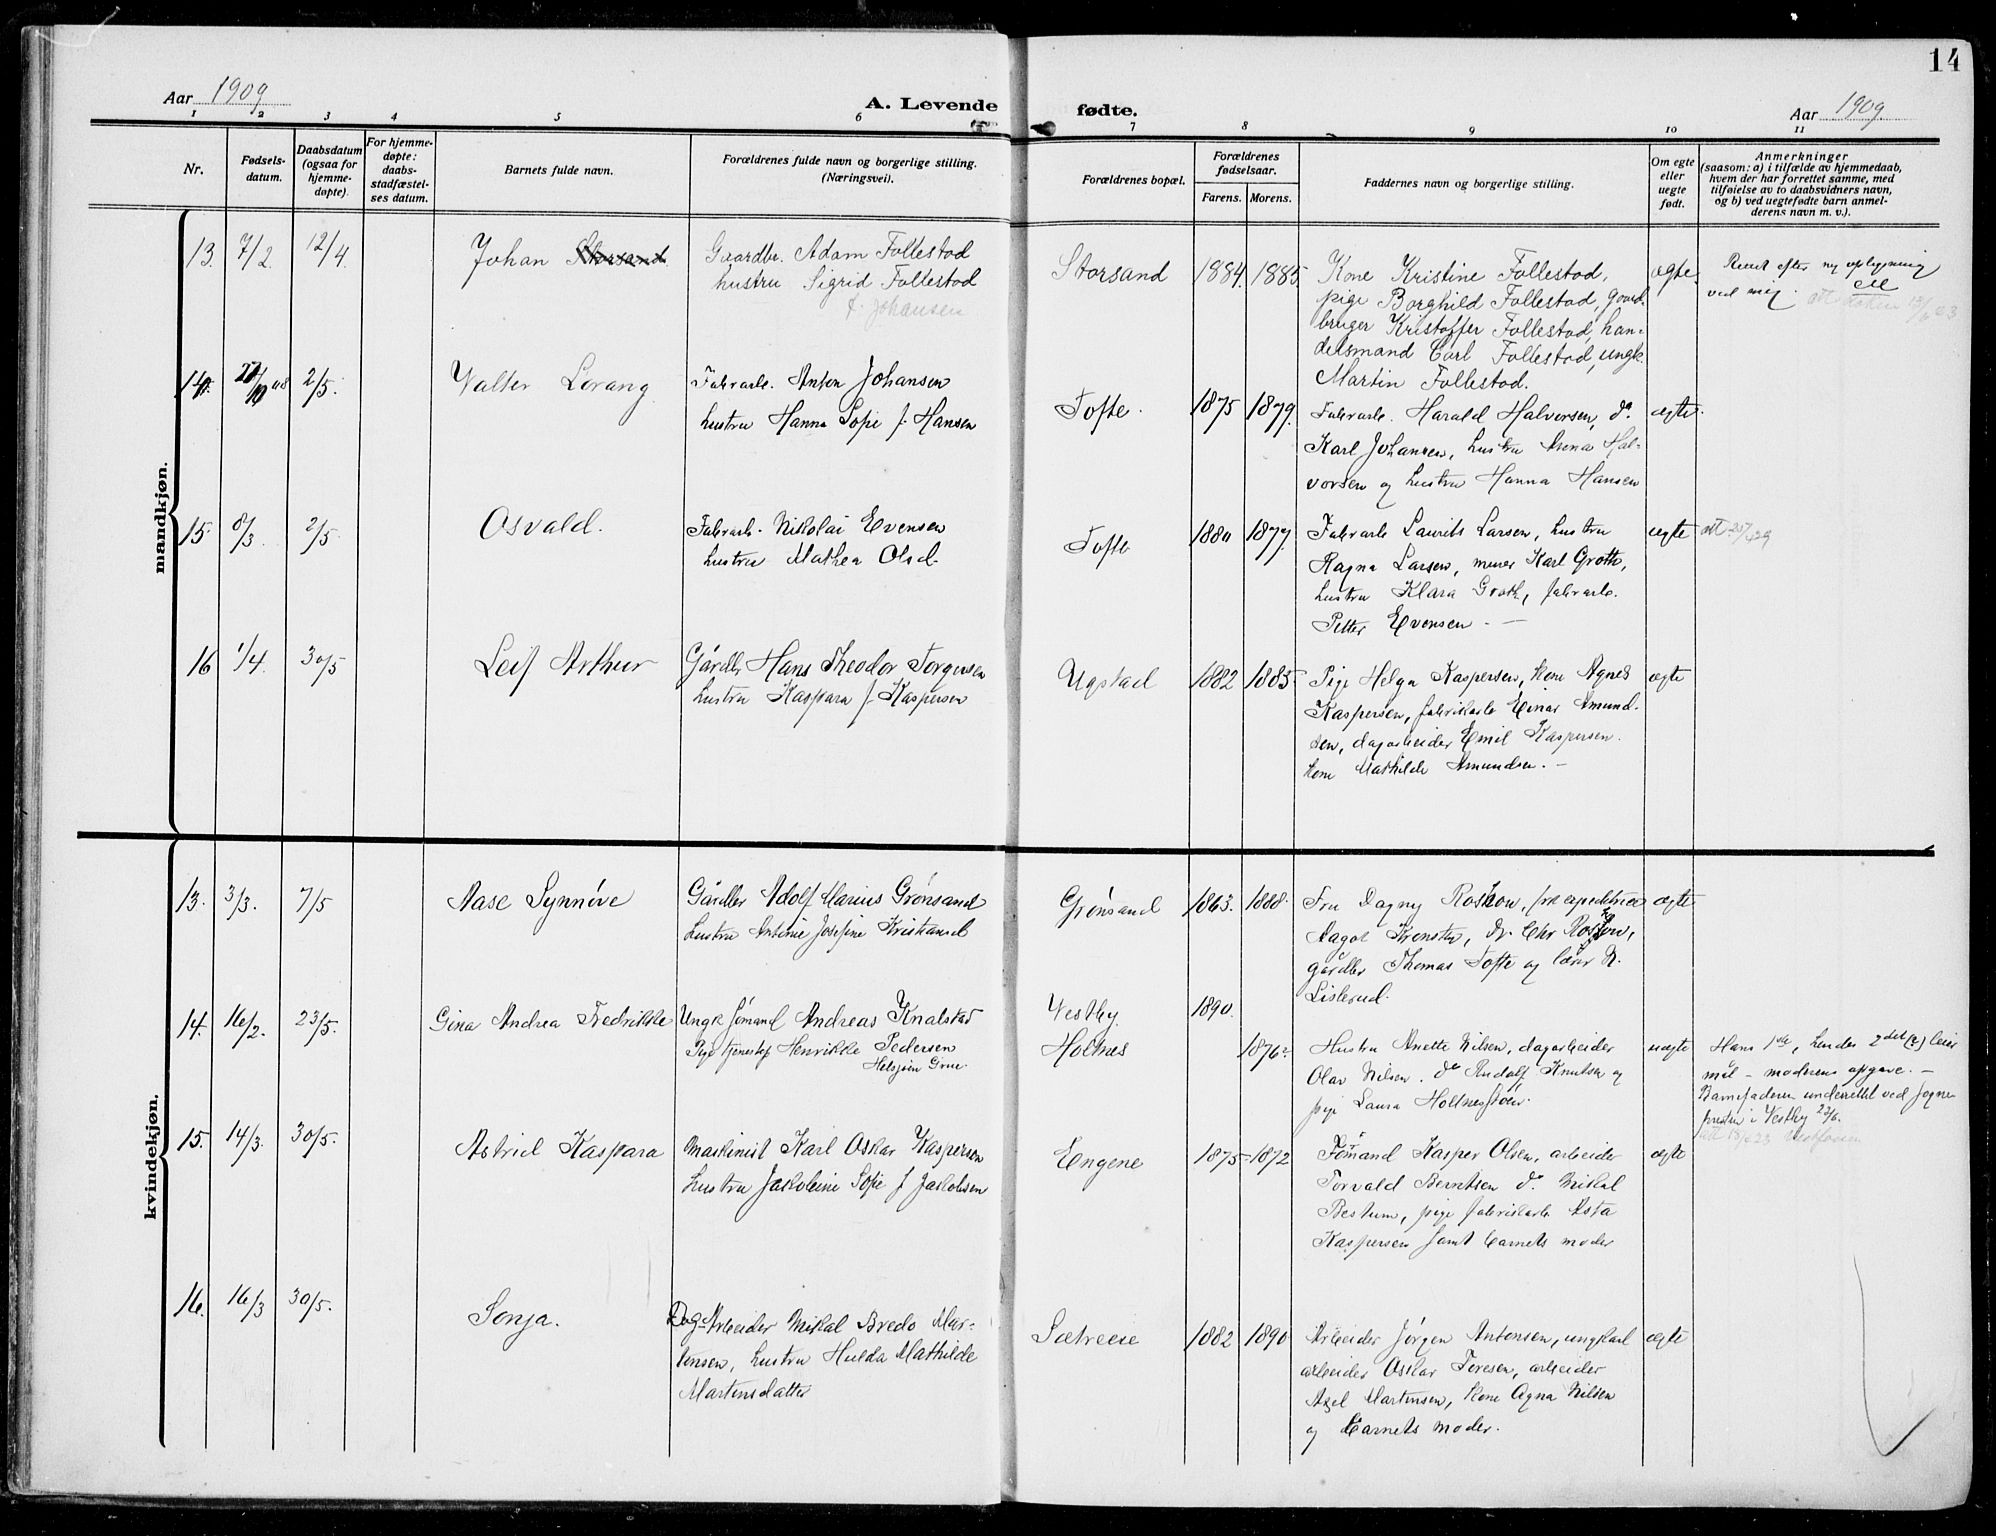 14
Aar 1909
A. Levende fødte.
Aar 1909.
1 2 3 4 5 6 7 8 9 10 11
Nr.
Fødsels-
datum.
Daabsdatum
(ogsaa for
hjemme-
døpte).
For hjemme-
døpte:
daabs-
stadfæstel-
ses datum.
Barnets fulde navn.
Forældrenes fulde navn og borgerlige stilling.
(Næringsvei).
Forældrenes bopæl.
Forældrenes
fødselsaar.
Farens. Morens.
Faddernes navn og borgerlige stilling.
Om egte
eller
uegte
født.
Anmerkninger
(saasom: a) i tilfælde av hjemmedaab,
hvem der har forrettet samme, med
tilføielse av to daabsvidners navn,
og b) ved uegtefødte barn anmel-
derens navn m. v.).
mandkjøn.
13. 7/2 12/4
Johan Storsand
Gaardbr. Adam Follestad
hustru Sigrid Follestad
f. Johansen
Storsand 1884. 1885.
Kone Kristine Follestad,
pige Borghild Follestad, gaard-
bruger Kristoffer Follestad, han-
delsmand Carl Follestad, ungk.
Martin Follestad.
egte.
Rettet efter ny oplysning
ved mig.
14. 08 2/5.
Valter Lorang
Fabrarb. Anton Johansen
hustru Hanna Sofie f. Hansen
Tofte. 1875 1879.
Fabrarb. Harald Halvorsen, do
Karl Johansen, hustru Anna Hal-
vorsen og hustru Hanna Hansen
egte.
15. 8/3. 2/5.
Osvald.
Fabrarb. Nikolai Evensen
hustru Mathea Olsd.
Tofte 1880 1879.
Fabrarb Laurits Larsen, hustru
Ragna Larsen, murer Karl Groth,
hustru Klara Groth, fabrarb.
Petter Evensen. —
egte
16 1/4. 30/5
Leif Arthur
Gårdbr Hans Theodor Torgersen
hustru Kaspara f. Kaspersen
Ugstad 1882 1885.
Pige Helga Kaspersen, kone Agnes
Kaspersen, fabrikarb Einar Amund-
sen, dagarbeider Emil Kaspersen.
kone Mathilde Amundsen. —
egte
kvindekjøn.
13. 3/3. 7/5
Aase Synnöve
Gårdbr Adolf Marius Grönsand
hustru Antinie Josefine Kristiansd
Grönsand 1863. 1888.
Fru Dagny, frk expeditrice
Aagot, Chr,
gårdbr Thomas Tofte og lærer N.
Lislerud.
egte
14. 16/2. 23/5.
Gina Andrea Fredrikke
Ungk sömand Andreas Knalstad
Pige tjenestep Henrikke Pedersen
Vestby 1890.
Holtnes 1876.
Hustru Anette Nilsen, dagarbeider
Olav Nilsen. do Rudolf Knutsen og
pige Laura
uegte
Hans 1ste, hendes 2det (?) leier
mål — moderens opgave. —
Barnefaderen underrettet ved sogne-
presten i Vestby
15. 14/3. 30/5.
Astrid Kaspara
Maskinist Karl Oskar Kaspersen
hustru Jakobine Sofie f Jakobsen
Engene 1875 – 1872
Sömand Kasper Olsen, arbeider
Torvald Berntsen do Mikal
Bestum, pige fabrikarb Asta
Kaspersen samt barnets moder
egte
16. 16/3 30/5.
Sonja.
Dag-Arbeider Mikal Bredo Mar-
tensen, hustru Hulda Mathilde
Martensdatter
Sætreeie 1882 1890
Arbeider Jørgen Antonsen, ungkarl
arbeider Oskar Toresen, arbeider
Axel Martensen, kone Agna Nilsen
og barnets moder.
egte